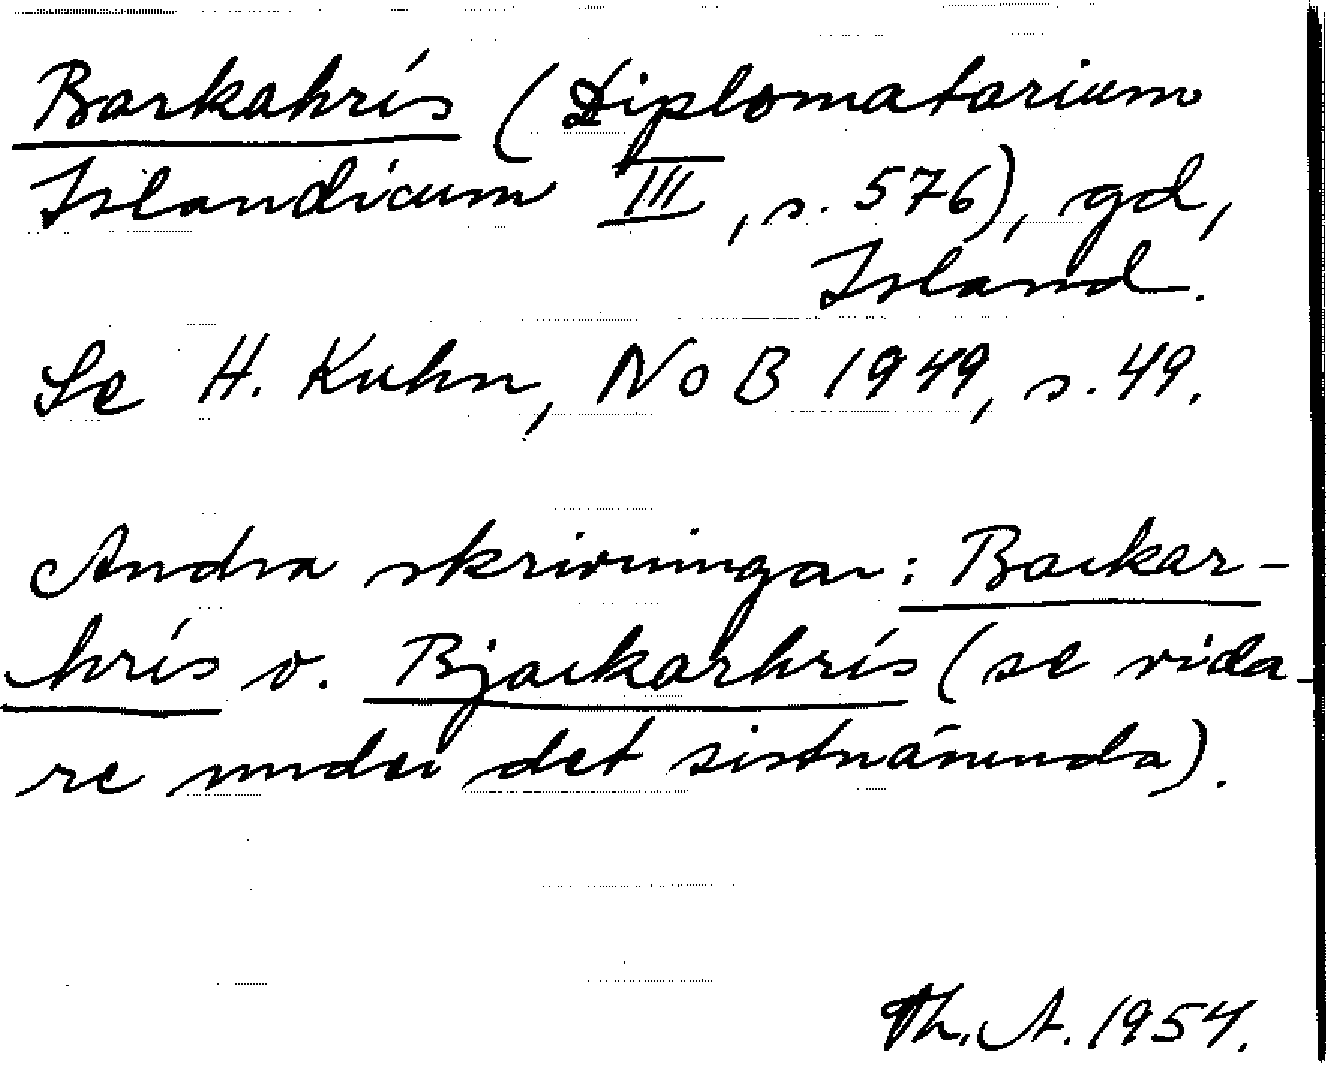 Barkahrís (Diplomatarium
Islandicum III, s. 576), gd,
Island.
Se H. Kuhn, NoB 1949, s. 49.
Andra skrivningar: Backar-
hrís o. Bjarkarhrís (se vida-
re under det sistnämnda).
Th. A. 1954.